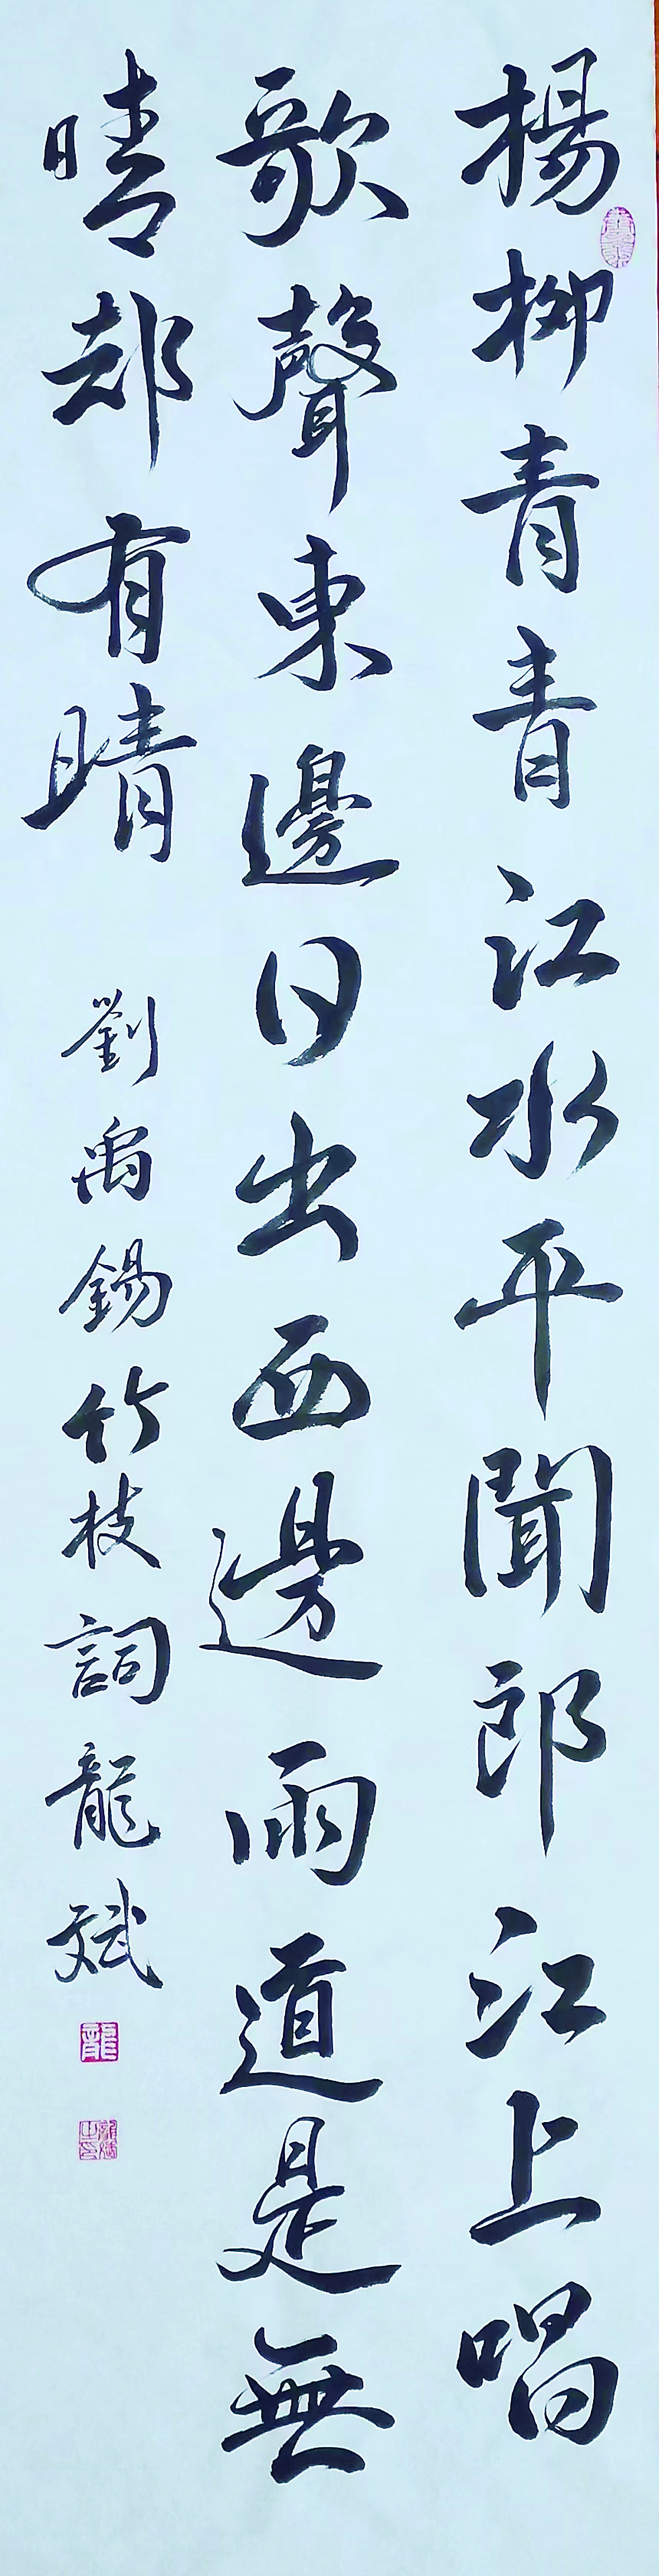 楊柳青青江水平聞郎江上唱
歌聲東邊日出西邊雨道是無
晴却有晴 劉禹錫竹枝詞龍斌
龍